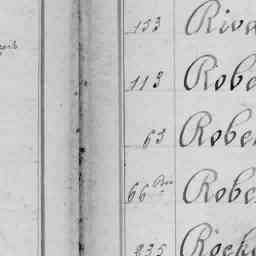 153 Riva
113 Robe
63 Rober
66 Robe
235 Roche